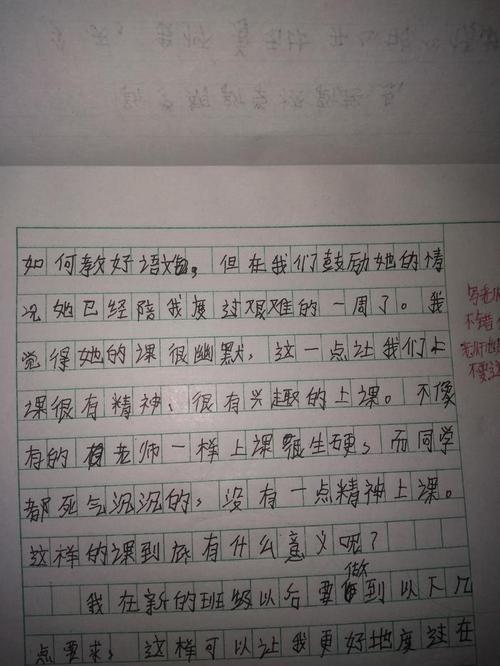 如何教好语文, 但在我们鼓励她的情
况她已经陪我度过艰难的一周了。我
觉得她的课很幽默, 这一点让我们上
课很有精神、很有兴趣的上课。不像
有的老师一样上课很生硬, 而同学
都死气沉沉的, 没有一点精神上课。
这样的课到底有什么意义呢?
我在新的班级以后要做到以下几
点要求: 这样可以让我更好地度过在
不错